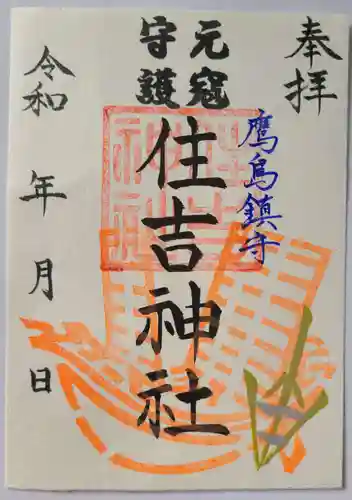 奉拝
元寇
守護
鷹島鎮守
住吉神社
令和 年 月 日